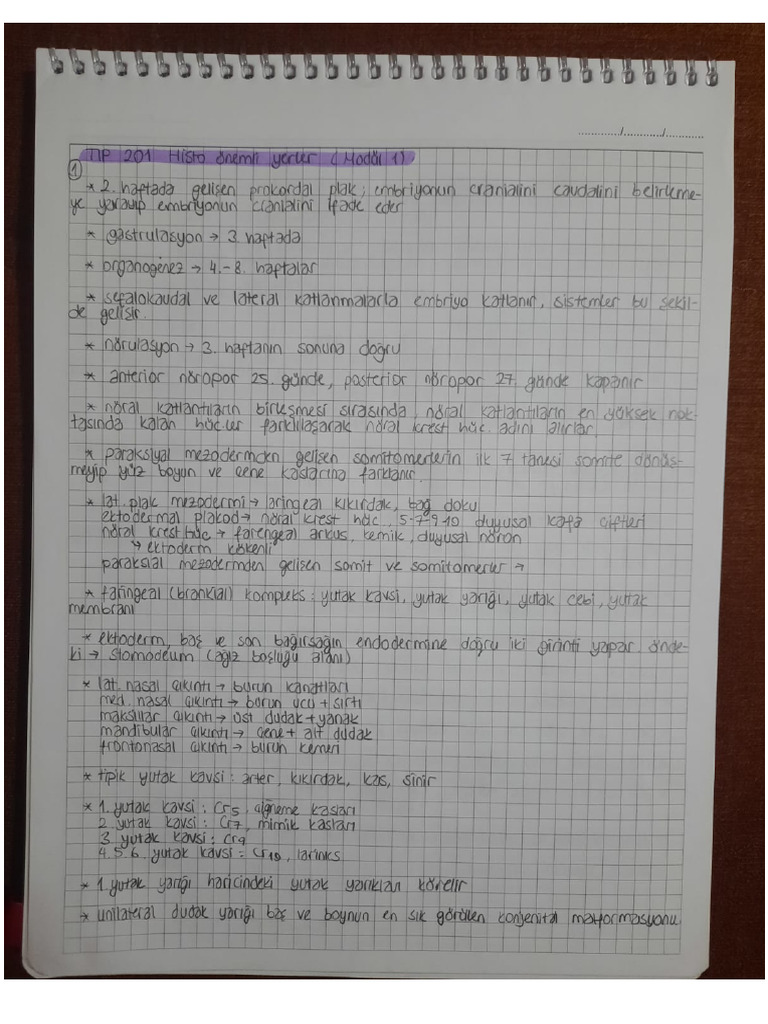 ............/............/............
TIP 201 Histo önemli yerler (Modül 1)
1
* 2. haftada gelişen prokordal plak; embriyonun cranialini caudalini belirleme-
ye yarayıp embriyonun cranialini ifade eder
* gastrulasyon → 3. haftada
* organogenez → 4.-8. haftalar
* sefalokaudal ve lateral katlanmalarla embriyo katlanır, sistemler bu şekil-
de gelişir.
* nörulasyon → 3. haftanın sonuna doğru
* anterior nöropor 25. günde, posterior nöropor 27. günde kapanır
* nöral katlantıların birleşmesi sırasında, nöral katlantıların en yüksek nok-
tasında kalan hüc.ler farklılaşarak nöral krest hüc. adını alırlar.
* paraksiyal mezodermden gelişen somitomerlerin ilk 7 tanesi somite dönüş-
meyip yüz boyun ve çene kaslarına farklanır.
* lat. plak mezodermi → laringeal kıkırdak, bağ doku
ektodermal plakod → nöral krest hüc, 5-7-9-10 duyusal kafa çiftleri
nöral krest hüc → farengeal arkus, kemik, duyusal nöron
↳ ektoderm kökenli
paraksial mezodermden gelişen somit ve somitomerler →
* faringeal (brankial) kompleks: yutak kavsi, yutak yarığı, yutak cebi, yutak
membranı
* ektoderm, baş ve son bağırsağın endodermine doğru iki girinti yapar. önde-
ki → stomodeum (ağız boşluğu alanı)
* lat. nasal çıkıntı → burun kanatları
med. nasal çıkıntı → burun ucu + sırtı
maksillar çıkıntı → üst dudak + yanak
mandibular çıkıntı → çene + alt dudak
frontonasal çıkıntı → burun kemeri
* tipik yutak kavsi: arter, kıkırdak, kas, sinir
* 1. yutak kavsi: Cr5, çiğneme kasları
2. yutak kavsi: Cr7, mimik kasları
3. yutak kavsi: Cr9
4.5.6. yutak kavsi: Cr10, larinks
* 1. yutak yarığı haricindeki yutak yarıkları körelir
* unilateral dudak yarığı baş ve boynun en sık görülen konjenital malformasyonu